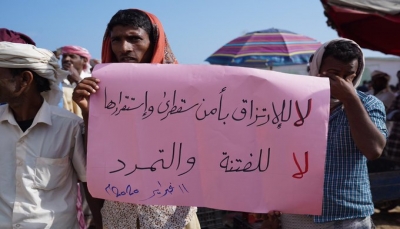 لا للارتزاق بأمن سقطرى وإستقرارها
لا للفتنة والتمرد
١١ فبراير